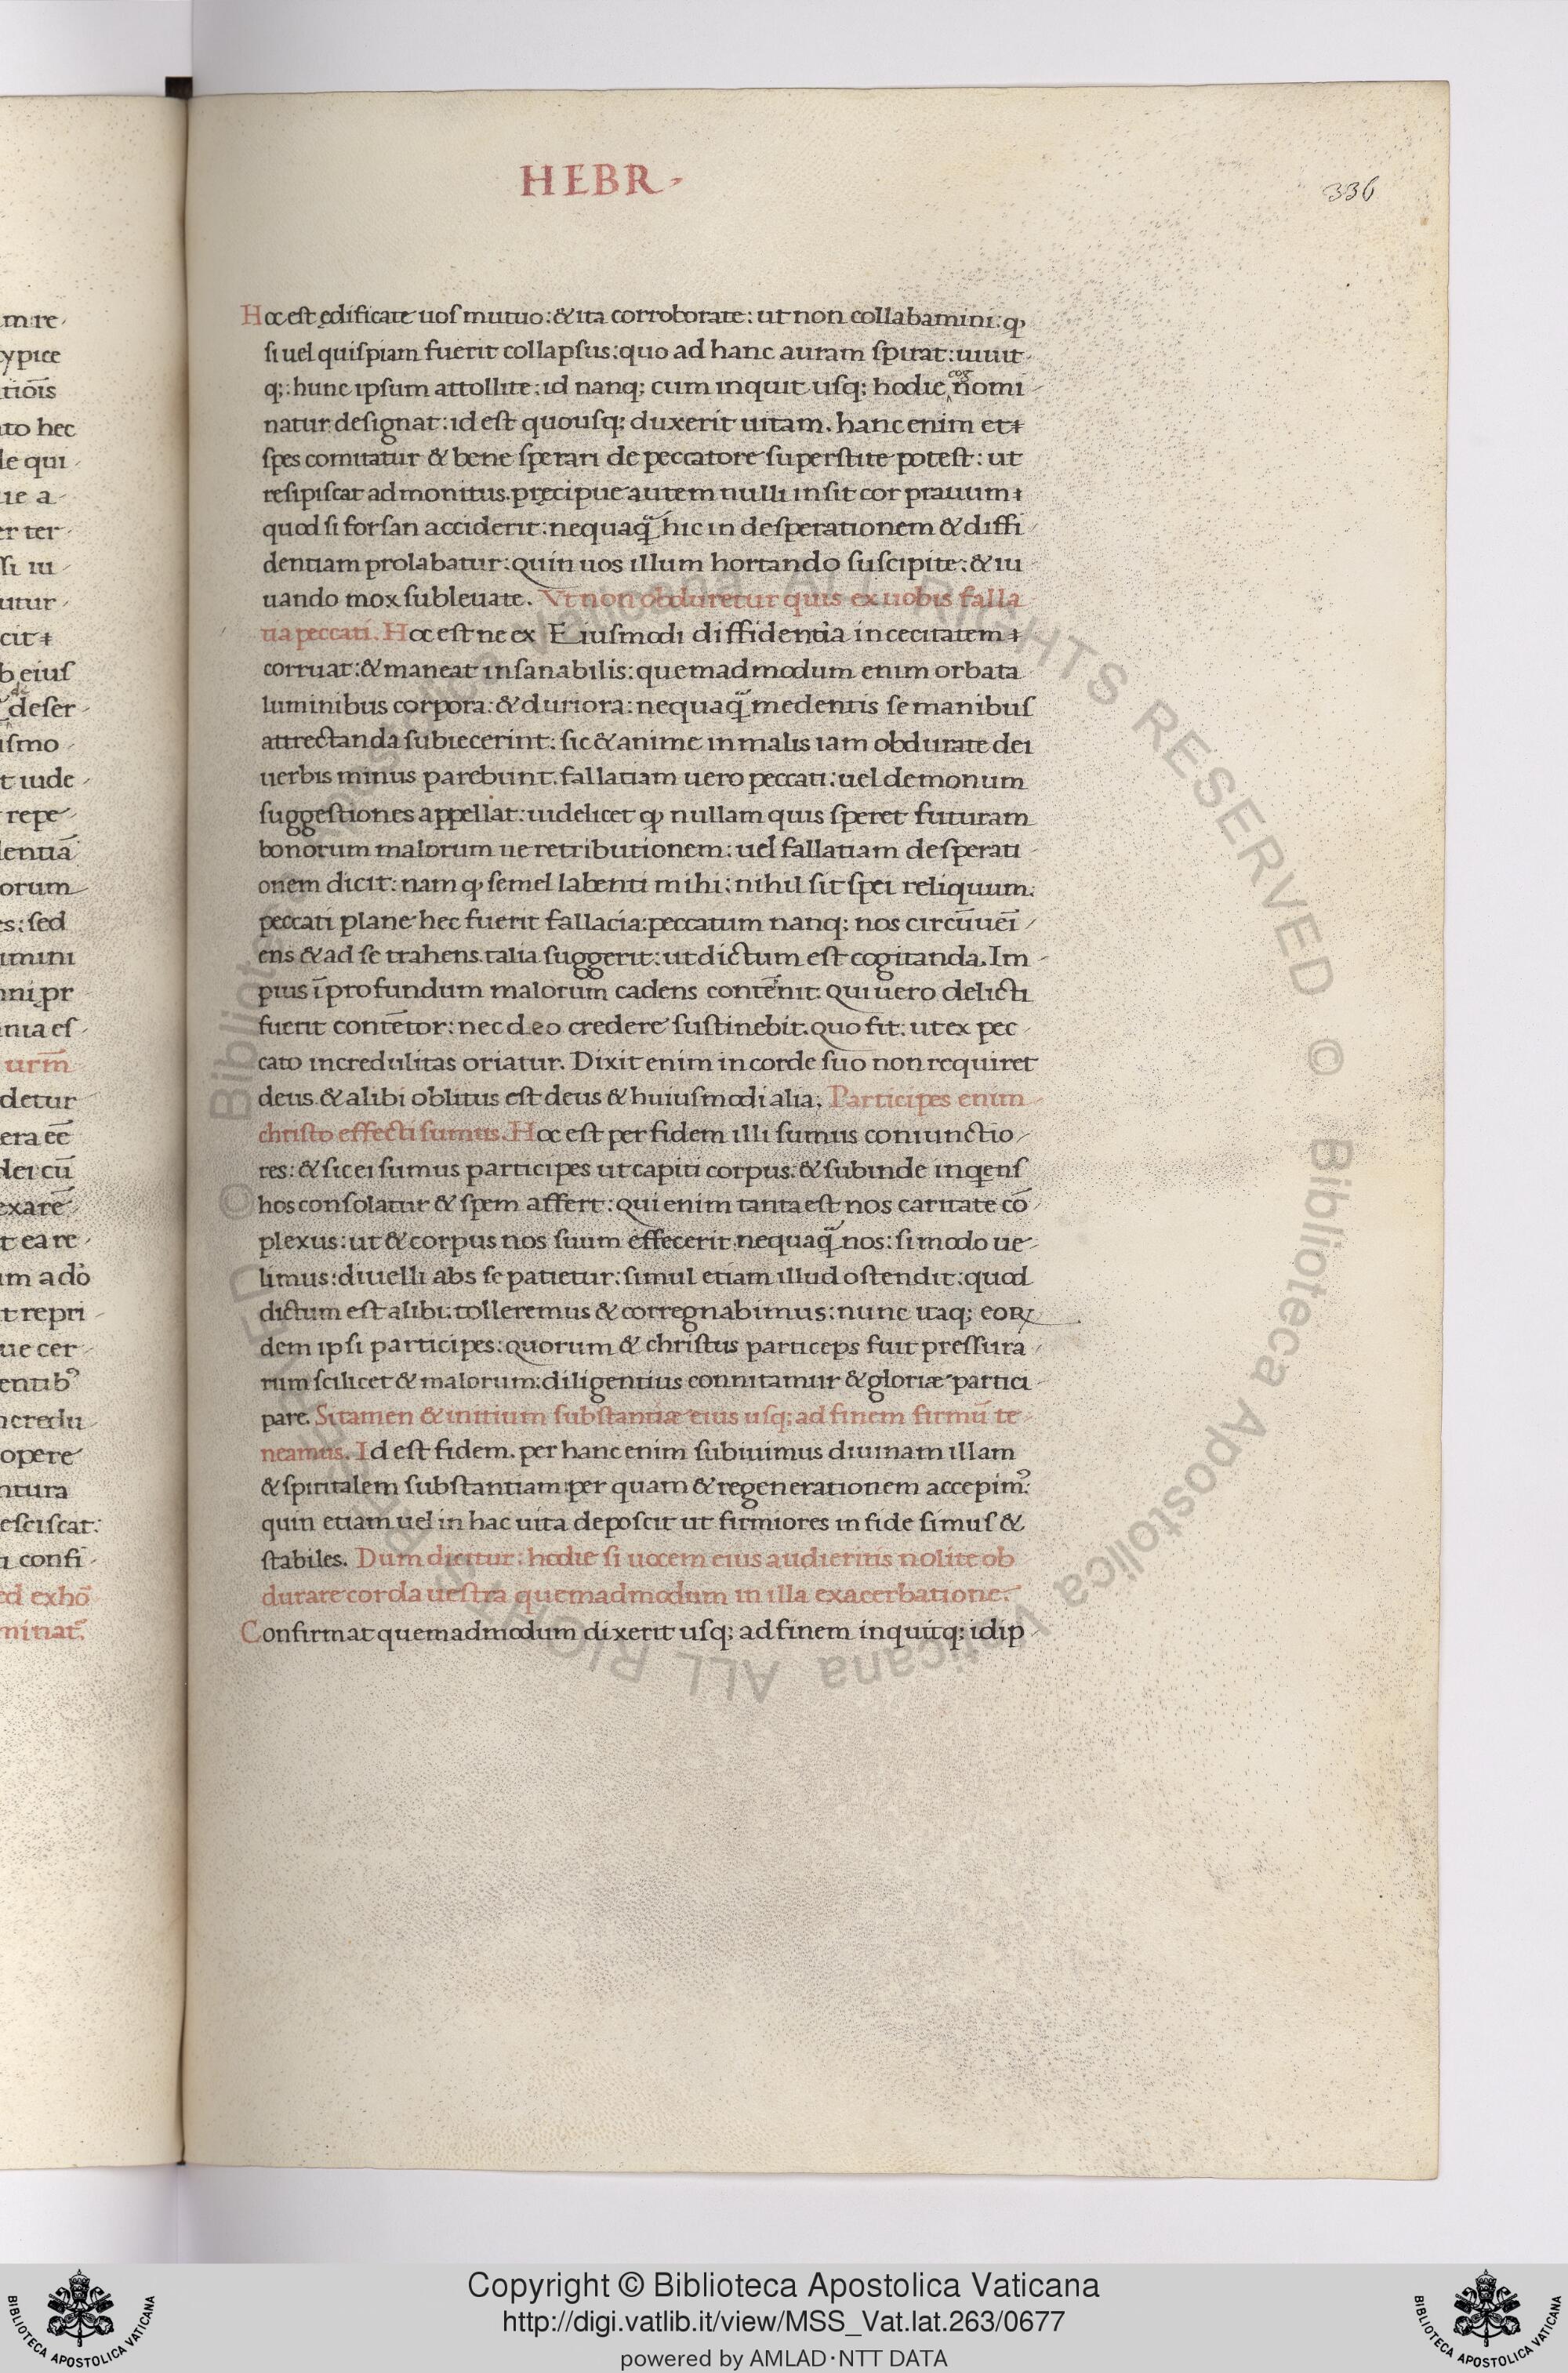 HEBR
336
Hoc est ędificate uos mutuo: & ita corroborate: ut non collabamini: ꝙ
si uel quispiam fuerit collapsus: quo ad hanc auram spirat: uiuit
q;: hunc ipsum attollite: id nanq; cum inquit usq; hodie cog n̄omi
natur designat: id est quousq; duxerit uitam. hanc enim et
spes comitatur & bene sperari de peccatore superstite potest: ut
resipiscat admonitus. pręcipue autem nulli insit cor prauum
quod si forsan acciderit: nequaq̃ hic in desperationem & diffi
dentiam prolabatur: quin uos illum hortando suscipite: & iu
uando mox subleuate. Vt non obduretur quis ex uobis falla
tia peccati. Hoc est ne ex Eiusmodi diffidentia in cecitatem
corruat: & maneat insanabilis: quemadmodum enim orbata
luminibus corpora: & duriora: nequaq̃ medentis se manibus
attrectanda subiecerint: sic & anime in malis iam obdurate dei
uerbis minus parebunt. fallatiam uero peccati: uel demonum
suggestiones appellat: uidelicet ꝙ nullam quis speret futuram
bonorum malorum ue retributionem: uel fallatiam desperati
onem dicit: nam ꝙ semel labenti mihi: nihil sit spei reliquum:
peccati plane hec fuerit fallacia: peccatum nanq: nos circūueī
ens & ad se trahens. talia suggerit: ut dictum est cogitanda. Im
pius ī profundum malorum cadens contēnit. Qui uero delicti
fuerit contētor: nec deo credere sustinebit. quo fit: ut ex pec
cato incredulitas oriatur. Dixit enim in corde suo non requiret
deus. & alibi oblitus est deus & huiusmodi alia. Participes enim
christo effecti sumus. Hoc est per fidem illi sumus coniunctio
res: & sic ei sumus participes ut capiti corpus. & subinde inqens
hos consolatur & spem affert: qui enim tanta est nos caritate cō
plexus: ut & corpus nos suum effecerit. nequaq̃ nos: si modo ue
limus: diuelli abs se patietur: simul etiam illud ostendit: quod
dictum est alibi. tolleremus & corregnabimus: nunc itaq; eoꝝ
dem ipsi participes: quorum & christus particeps fuit pressura
rum scilicet & malorum: diligentius connitamur & gloriæ partici
pare. Si tamen & initium substantiæ eius usq; ad finem firmū te
neamus. Id est fidem. per hanc enim subiuimus diuinam illam
& spiritalem substantiam: per quam & regenerationem accepim⁹:
quin etiam uel in hac uita deposcit ut firmiores in fide simus &
stabiles. Dum dicitur: hodie si uocem eius audieritis nolite ob
durare corda uestra quemadmodum in illa exacerbatione.
Confirmat quemadmodum dixerit usq; ad finem inquitq; id ip
Copyright © Biblioteca Apostolica Vaticana
http://digi.vatlib.it/view/MSS_Vat.lat.263/0677
powered by AMLAD·NTT DATA